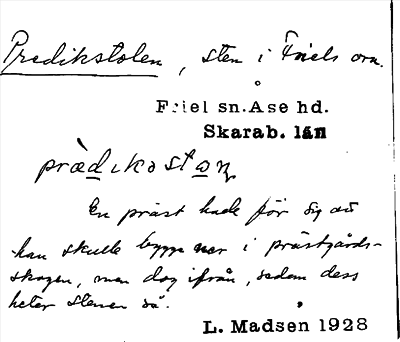 Predikstolen, sten i Friels orn.
Friel sn. Åse hd.
Skarab. län
prædɩkastaɳ
En präst hade för sig att
han skulle bygga ner i prästgårds-
skogen, men dog ifrån, sedan dess
heter stenen så.
L. Madsen 1928